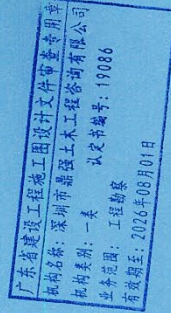 广东省建设工程施工图设计文件审查专用章
机构名称：深圳市鼎强土木工程咨询有限公司
机构类别：一类 认定书编号：19086
业务范围：工程勘察
有效期至：2026年08月01日